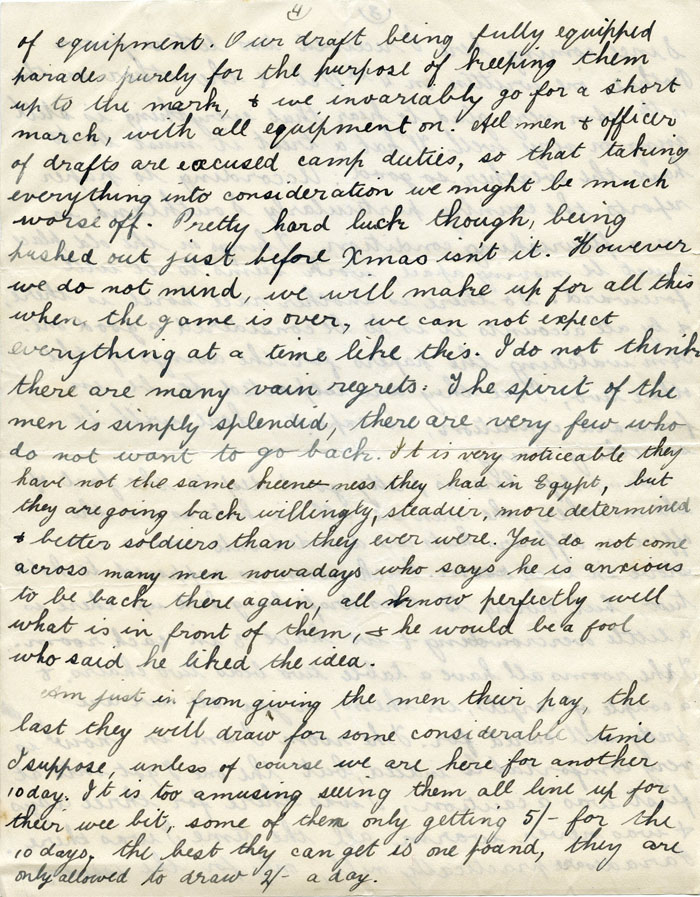 4
of equipment. Our draft being fully equipped
parades purely for the purpose of keeping them
up to the mark, & we invariably go for a short
march, with all equipment on. All men & officer
of drafts are excused camp duties, so that taking
everything into consideration we might be much
worse off. Pretty hard luck though, being
pushed out just before Xmas isn't it. However
we do not mind, we will make up for all this
when the game is over, we can not expect
everything at a time like this. I do not think
there are many vain regrets: The spirit of the
men is simply splendid, there are very few who
do not want to go back. It is very noticeable they
have not the same keene-ness they had in Egypt, but
they are going back willingly, steadier, more determined
& better soldiers than they ever were. You do not come
across many men nowadays who says he is anxious
to be back there again, all know perfectly well
what is in front of them, & he would be a fool
who said he liked the idea.
Am just in from giving the men their pay, the
last they will draw for some considerable time
I suppose, unless of course we are here for another
10 day. It is too amusing seeing them all line up for
their wee bit, some of them only getting 5/- for the
10 days. the best they can get is one pound, they are
only allowed to draw 2/- a day.